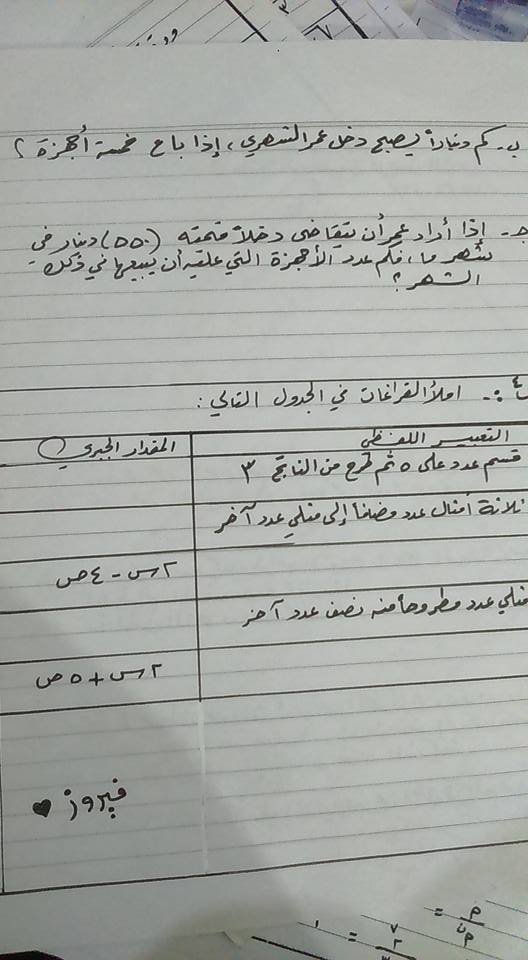 ب- كم ديناراً يصبح دخل عمر الشهري، إذا باع خمسة أجهزة ؟
جـ- إذا أراد عمر أن يتقاضى دخلاً قيمته (٥٥٠) دينار في
شهر ما، فكم عدد الأجهزة التي عليه أن يبيعها في ذلك
الشهر ؟
س٤ :- املأ الفراغات في الجدول التالي :
التعبير اللفظي المقدار الجبري
قسم عدد على ٥ ثم طرح من الناتج ٣
ثلاثة أمثال عدد مضافاً إلى مثلي عدد آخر
٢س - ٤ص
مثلي عدد مطروحاً منه نصف عدد آخر
٢س + ٥ص
فيروز ♥